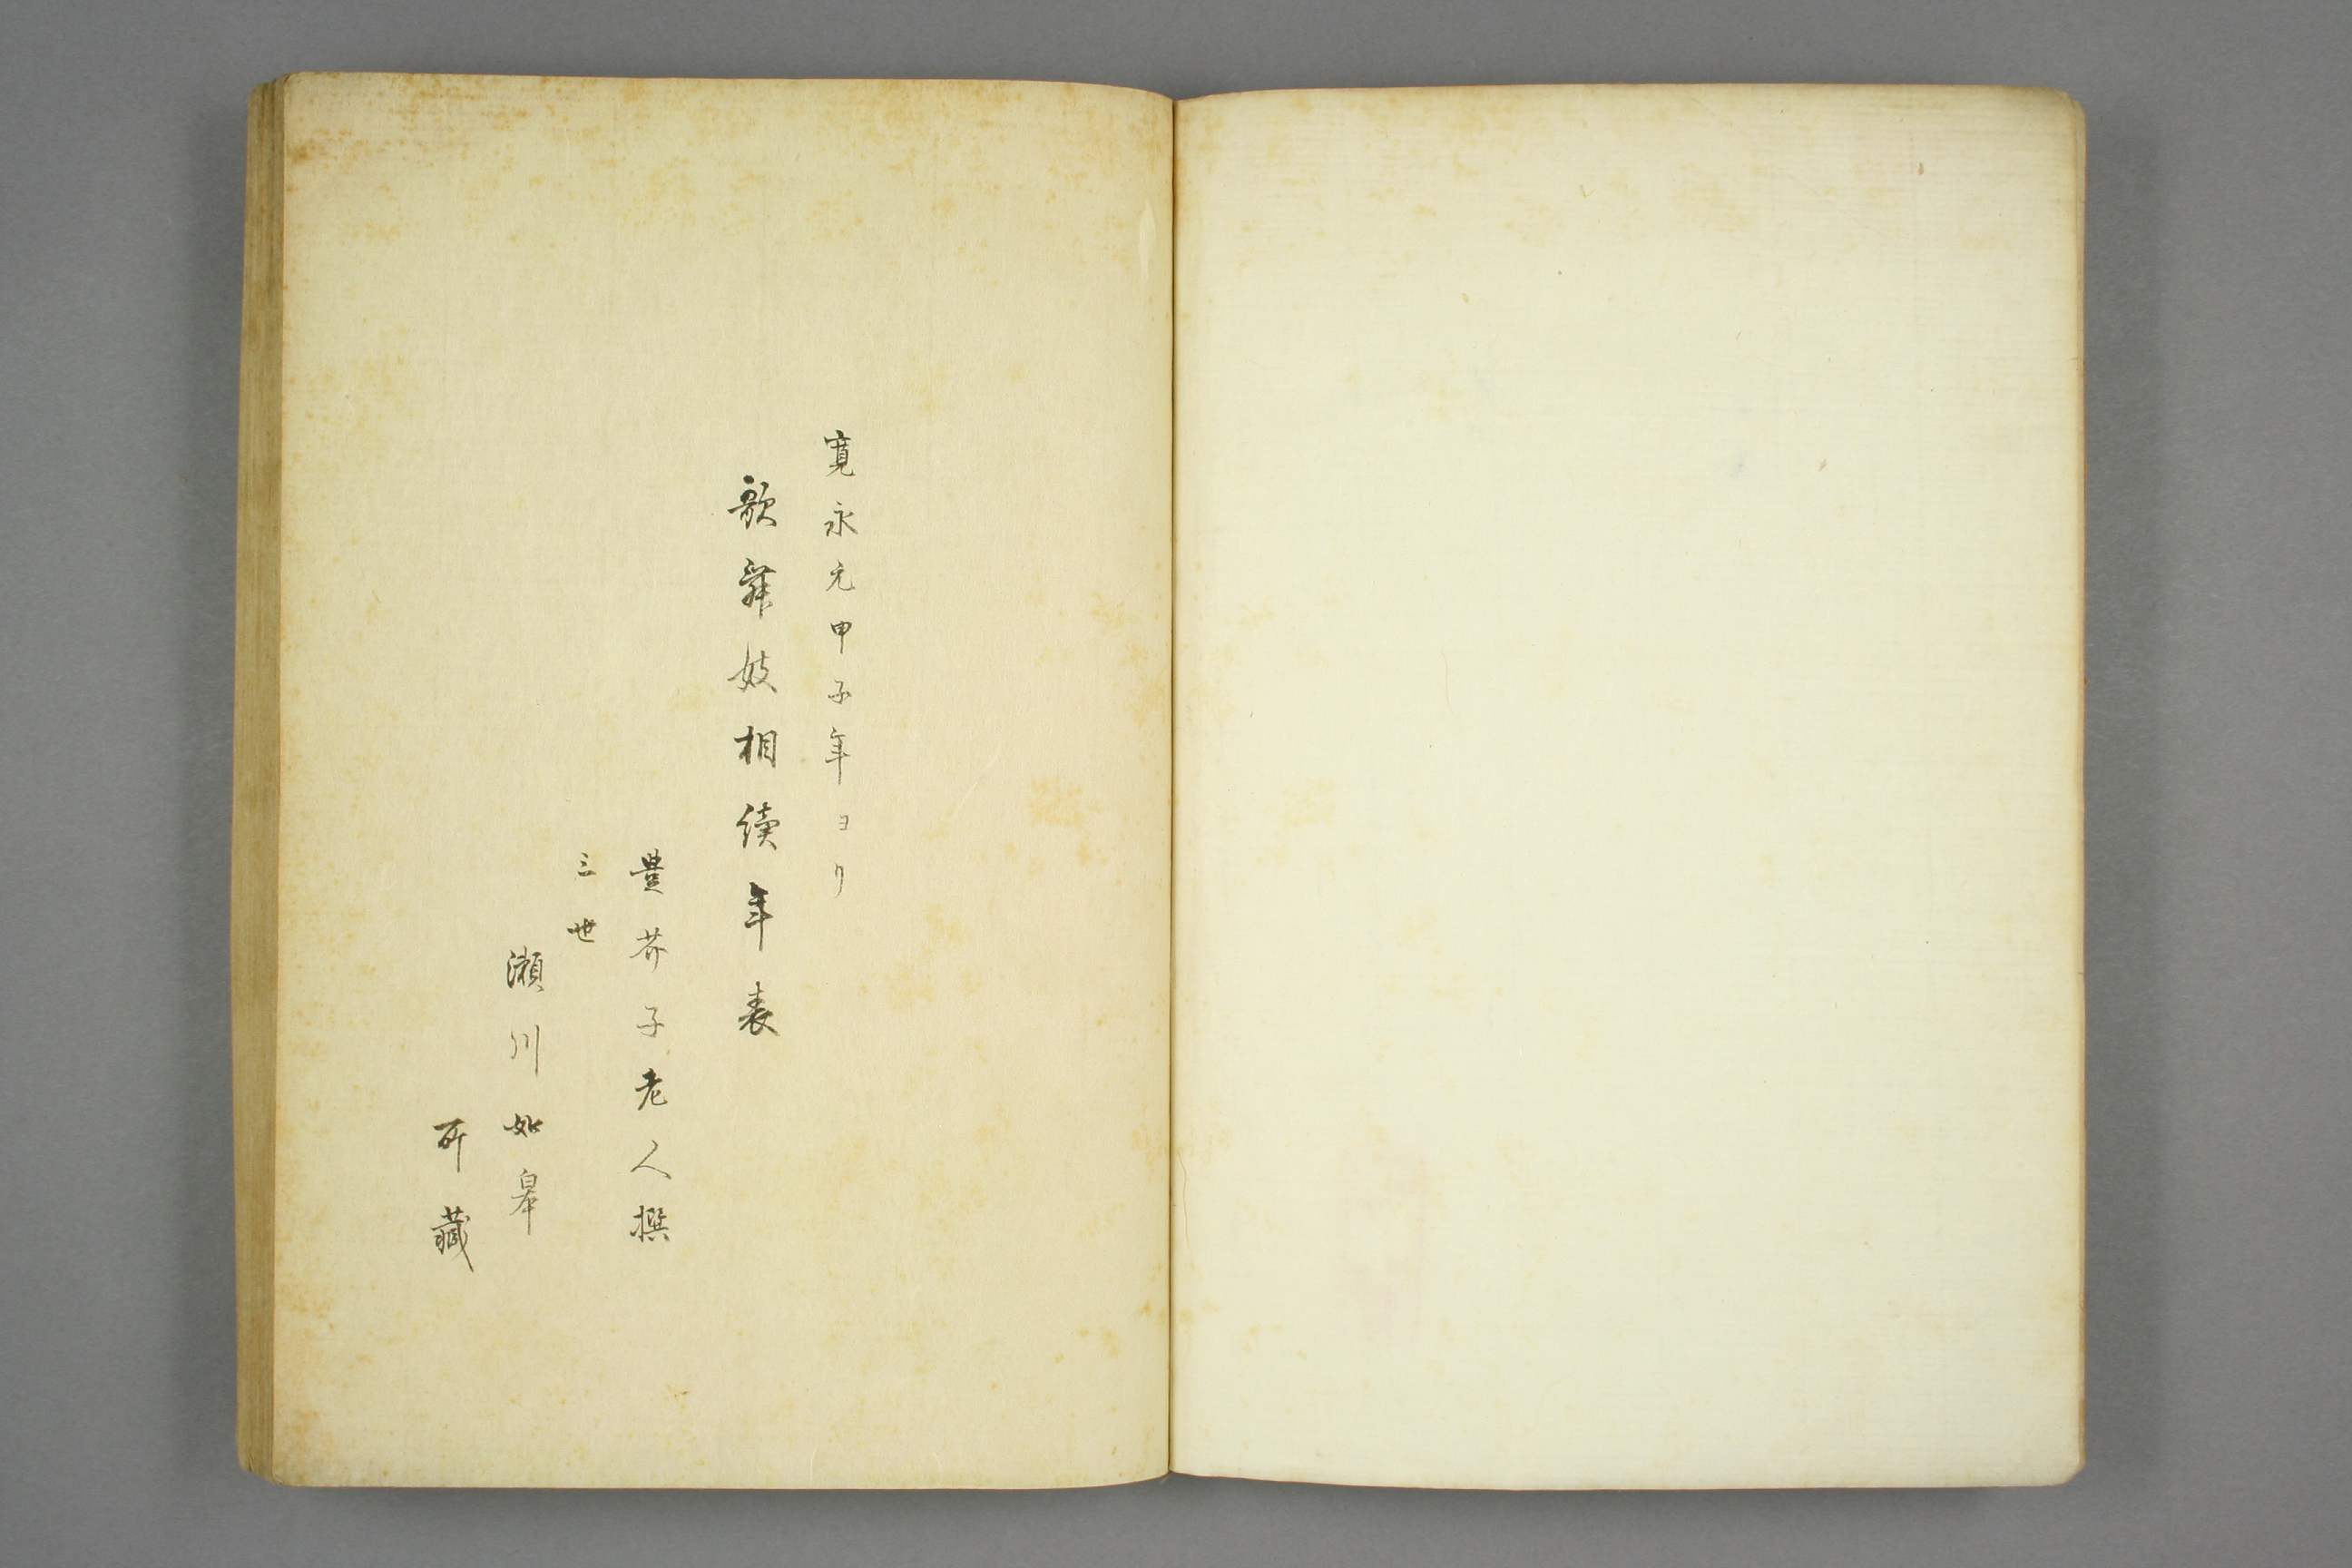 寛永元甲子年ヨリ
歌舞妓相續年表
豊芥子老人撰
三世
瀬川如皐
所藏